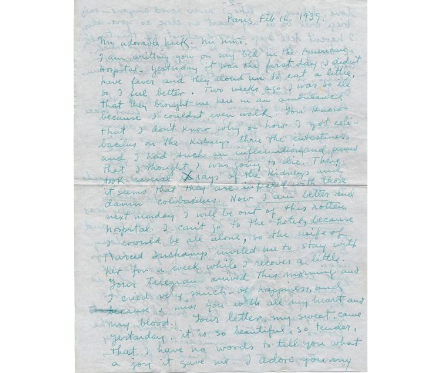 Paris, Feb 16, 1939.
My adorable Nick. Mi niño.
I am writing you on my bed in the American
Hospital. Yesterday it was the first day I didn't
have fever and they aloud me to eat a little,
so I feel better. Two weeks ago I was so ill
that they brought me here in an ambulance
because I couldn't even walk. You know
that I don't know why or how I got coli
bacilus on the kidneys thru the intestines
and I had such an inflamation and pains
that I thought I was going to die. They
took several X rays of the kidneys and
it seems that they are infected with those
damn colibacilus. Now I am better and
next monday I will be out of this rotten
hospital. I can't go to the hotel, because
I would be all alone, so the wife of
Marcel Duchamp invited me to stay with
her for a week while I recover a little.
Your telegram arrived this morning and
I cried very much - of happiness, and
because I miss you with all my heart and
my blood. Your letter, my sweet, came
yesterday, it is so beautiful, so tender,
that I have no words to tell you what
a joy it gave me. I adore you my